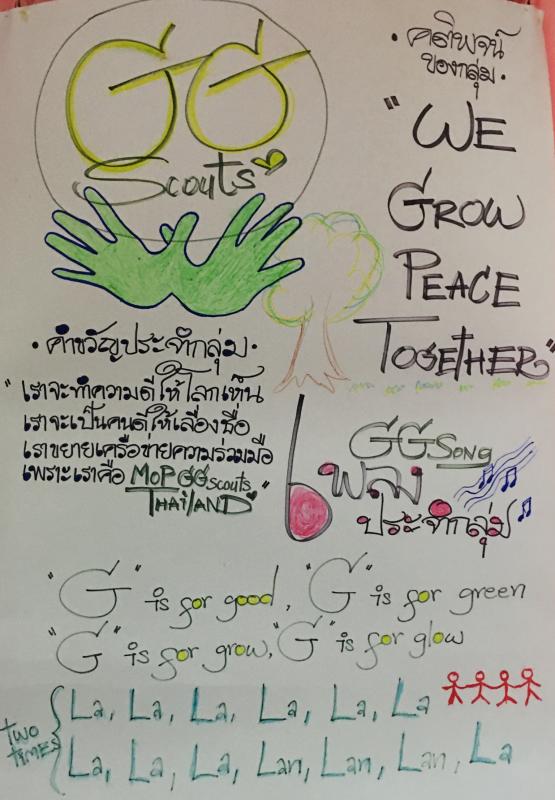 GG
Scouts
• คติพจน์
ของกลุ่ม •
"WE
GROW
PEACE
TOGETHER"
• คำขวัญประจำกลุ่ม •
"เราจะทำความดีให้โลกเห็น
เราจะเป็นคนดีให้เลื่องชื่อ
เราขยายเครือข่ายความร่วมมือ
เพราะเราคือ MOP GG Scouts
THAILAND"
GG SONG
เพลง
ประจำกลุ่ม
"G" is for good, "G" is for green
"G" is for grow, "G" is for glow
TWO TIMES { La, La, La, La, La, La
La, La, La, Lan, Lan, Lan, La